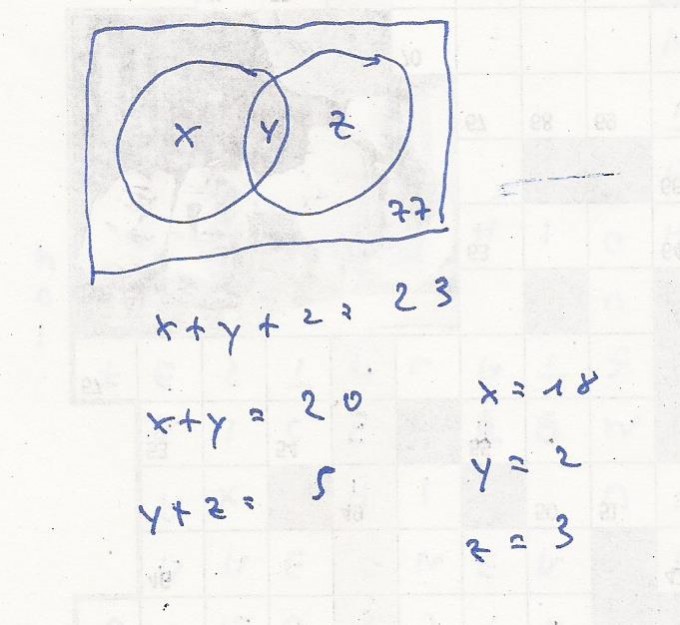 x y z
77
x + y + z = 23
x + y = 20
y + z = 5
x = 18
y = 2
z = 3